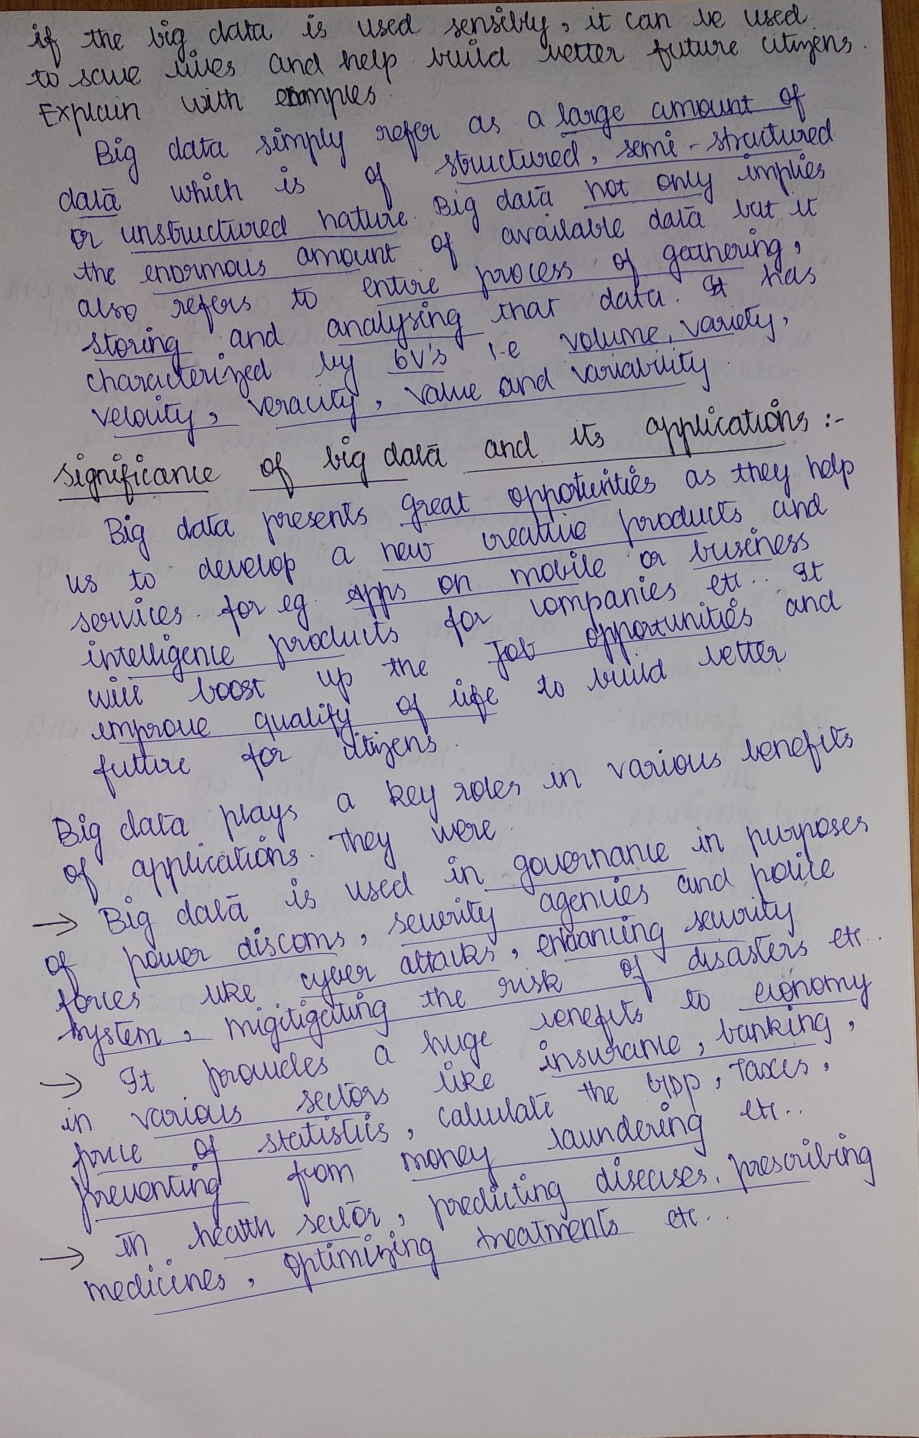 if the big data is used sensibly, it can be used
to save lives and help build better future citizens.
Explain with examples.
Big data simply refer as a large amount of
data which is of structured, semi-structured
or unstructured nature. Big data not only implies
the enormous amount of available data but it
also refers to entire process of gathering,
storing and analysing that data. It has
characterized by 6V's i.e volume, variety,
velocity, veracity, value and variability.
significance of big data and its applications :-
Big data presents great opportunities as they help
us to develop a new creative products and
services for eg. apps on mobile or business
intelligence products for companies etc.. It
will boost up the Job opportunities and
improve quality of life to build better
future for citizens.
Big data plays a key roles in various benefits
of applications. They were.
→ Big data is used in governance in purposes
of power discoms, security agencies and police
forces like cyber attacks, enhancing security
system, migitigating the risk of disasters etc..
→ It provides a huge benefits to economy
in various sectors like insurance, banking,
price of statistics, calculate the GDP, Taxes,
preventing from money laundering etc..
→ in health sector, predicting diseases, prescribing
medicines, optimizing treatments etc..